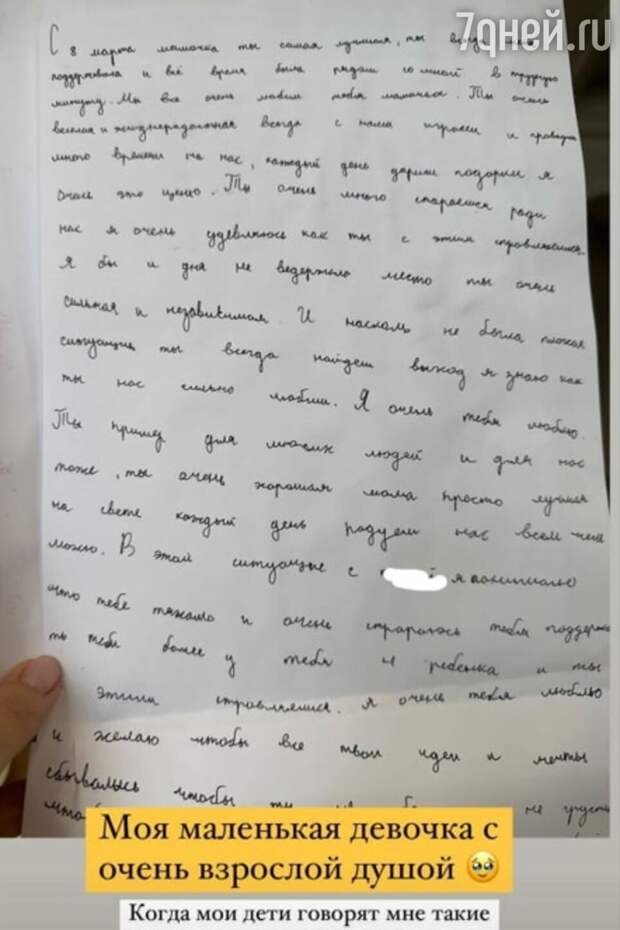 7дней.ru
С 8 марта мамочка ты самая лучшая, ты всегда меня
поддерживала и всё время была рядом со мной в трудную
минуту. Мы все очень любим тебя мамочка. Ты очень
веселая и жизнерадостная всегда с нами играеш и
много времени на нас, каждый день дариш подарки я
очень это ценю. Ты очень много стараешся ради
нас я очень удевляюсь как ты с этим справляешся.
Я бы и дня не ведержала место ты очень
сильная и независимая. И насколь не была плохая
ситуация ты всегда найдеш выход я знаю как
ты нас сильно любиш. Я очень тебя люблю.
Ты пример для многих людей и для нас
тоже, ты очень хорошая мама просто лучшая
на свете каждый день радуеш нас всем чем
можно. В этой ситуацые с я понимаю
что тебе тяжало и очень страраюсь тебя поддержа
ть тем более у тебя 4 ребенка и ты
этим справляешся. я очень тебя люблю
и желаю чтобы все твои идеи и мечты
сбывались чтобы ты не грусти
чтобы
Моя маленькая девочка с
очень взрослой душой 🥹
Когда мои дети говорят мне такие